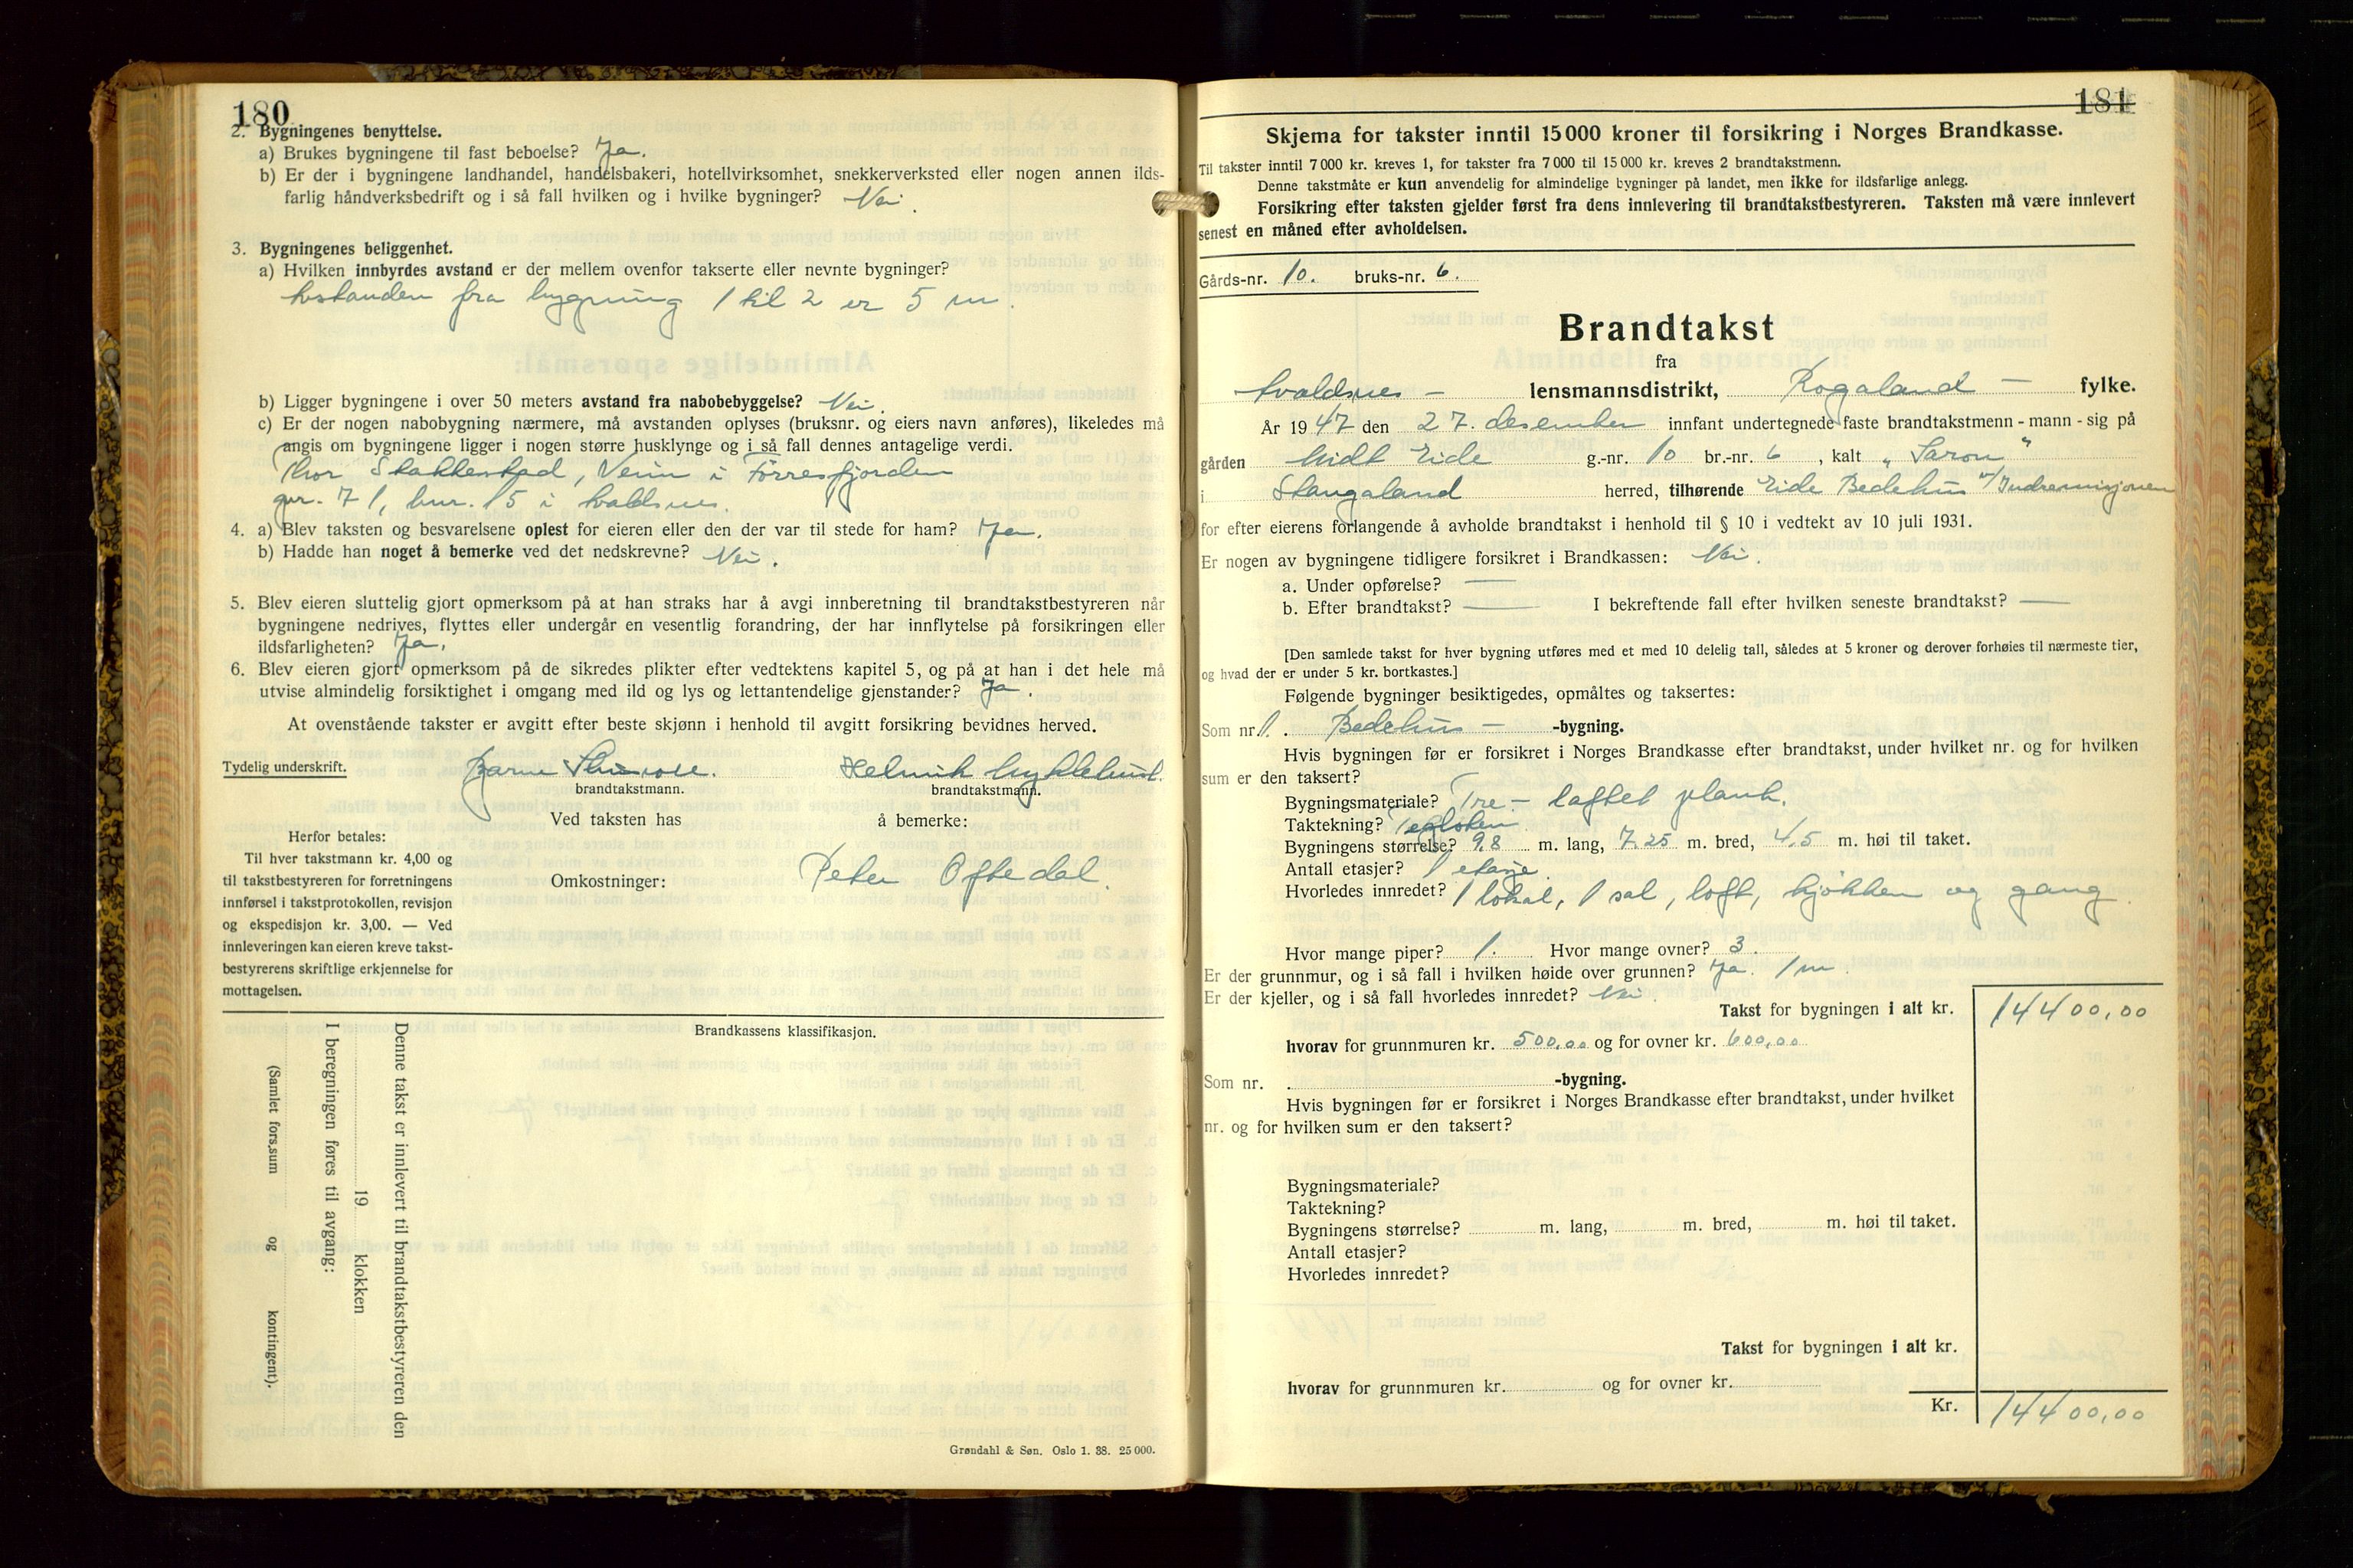 180
2. Bygningenes benyttelse.
a) Brukes bygningene til fast beboelse? Ja.
b) Er der i bygningene landhandel, handelsbakeri, hotellvirksomhet, snekkerverksted eller nogen annen ilds-
farlig håndverksbedrift og i så fall hvilken og i hvilke bygninger? Nei.
3. Bygningenes beliggenhet.
a) Hvilken innbyrdes avstand er der mellem ovenfor takserte eller nevnte bygninger?
Avstanden fra bygning 1 til 2 er 5 m.
b) Ligger bygningene i over 50 meters avstand fra nabobebyggelse? Nei.
c) Er der nogen nabobygning nærmere, må avstanden oplyses (bruksnr. og eiers navn anføres), likeledes må
angis om bygningene ligger i nogen større husklynge og i så fall dennes antagelige verdi.
Thor Stakkestad, i Førresfjorden
gnr. 71, bnr. 15 i Avaldsnes.
4. a) Blev taksten og besvarelsene oplest for eieren eller den der var til stede for ham? Ja.
b) Hadde han noget å bemerke ved det nedskrevne? Nei.
5. Blev eieren sluttelig gjort opmerksom på at han straks har å avgi innberetning til brandtakstbestyreren når
bygningene nedrives, flyttes eller undergår en vesentlig forandring, der har innflytelse på forsikringen eller
ildsfarligheten? Ja.
6. Blev eieren gjort opmerksom på de sikredes plikter efter vedtektens kapitel 5, og på at han i det hele må
utvise almindelig forsiktighet i omgang med ild og lys og lettantendelige gjenstander? Ja.
At ovenstående takster er avgitt efter beste skjønn i henhold til avgitt forsikring bevidnes herved.
Tydelig underskrift. Bjarne Helmik Myklebust.
brandtakstmann. brandtakstmann.
Ved taksten has å bemerke:
Herfor betales:
Til hver takstmann kr. 4,00 og
til takstbestyreren for forretningens
innførsel i takstprotokollen, revisjon
og ekspedisjon kr. 3,00. — Ved
innleveringen kan eieren kreve takst-
bestyrerens skriftlige erkjennelse for
mottagelsen.
Omkostninger: Peter Oftedal.
Brandkassens klassifikasjon.
Denne takst er innlevert til brandtakstbestyreren den
19 klokken
I beregningen føres til avgang:
(Samlet fors.sum og kontingent).
Grøndahl & Søn. Oslo 1. 38. 25 000.
181
Skjema for takster inntil 15 000 kroner til forsikring i Norges Brandkasse.
Til takster inntil 7 000 kr. kreves 1, for takster fra 7 000 til 15 000 kr. kreves 2 brandtakstmenn.
Denne takstmåte er kun anvendelig for almindelige bygninger på landet, men ikke for ildsfarlige anlegg.
Forsikring efter taksten gjelder først fra dens innlevering til brandtakstbestyreren. Taksten må være innlevert
senest en måned efter avholdelsen.
Gårds-nr. 10. bruks-nr. 6.
Brandtakst
fra
Avaldsnes – lensmannsdistrikt, Rogaland – fylke.
År 1947 den 27. desember innfant undertegnede faste brandtakstmenn - mann - sig på
gården Midt Eide g.-nr. 10 br.-nr. 6, kalt „Saron"
i Stangaland herred, tilhørende Eide Bedehus v/Indremisjonen
for efter eierens forlangende å avholde brandtakst i henhold til § 10 i vedtekt av 10 juli 1931.
Er nogen av bygningene tidligere forsikret i Brandkassen: Nei.
a. Under opførelse? —
b. Efter brandtakst? — I bekreftende fall efter hvilken seneste brandtakst? —
[Den samlede takst for hver bygning utføres med et med 10 delelig tall, således at 5 kroner og derover forhøies til nærmeste tier,
og hvad der er under 5 kr. bortkastes.]
Følgende bygninger besiktigedes, opmåltes og taksertes:
Som nr. 1. Bedehus – -bygning.
Hvis bygningen før er forsikret i Norges Brandkasse efter brandtakst, under hvilket nr. og for hvilken
sum er den taksert?
Bygningsmateriale? Tre – laftet plank.
Taktekning? Teglsten
Bygningens størrelse? 9,8 m. lang, 7,25 m. bred, 4,5 m. høi til taket.
Antall etasjer? 1 etasje.
Hvorledes innredet? 1 lokal, 1 sal, loft, kjøkken og gang.
Hvor mange piper? 1. Hvor mange ovner? 3.
Er der grunnmur, og i så fall i hvilken høide over grunnen? Ja. 1 m.
Er der kjeller, og i så fall hvorledes innredet? Nei.
Takst for bygningen i alt kr. 14400,00
hvorav for grunnmuren kr. 500,00 og for ovner kr. 600,00
Som nr. . -bygning.
Hvis bygningen før er forsikret i Norges Brandkasse efter brandtakst, under hvilket
nr. og for hvilken sum er den taksert?
Bygningsmateriale?
Taktekning?
Bygningens størrelse? m. lang, m. bred, m. høi til taket.
Antall etasjer?
Hvorledes innredet?
Takst for bygningen i alt kr.
hvorav for grunnmuren kr. og for ovner kr.
Kr. 14400,00